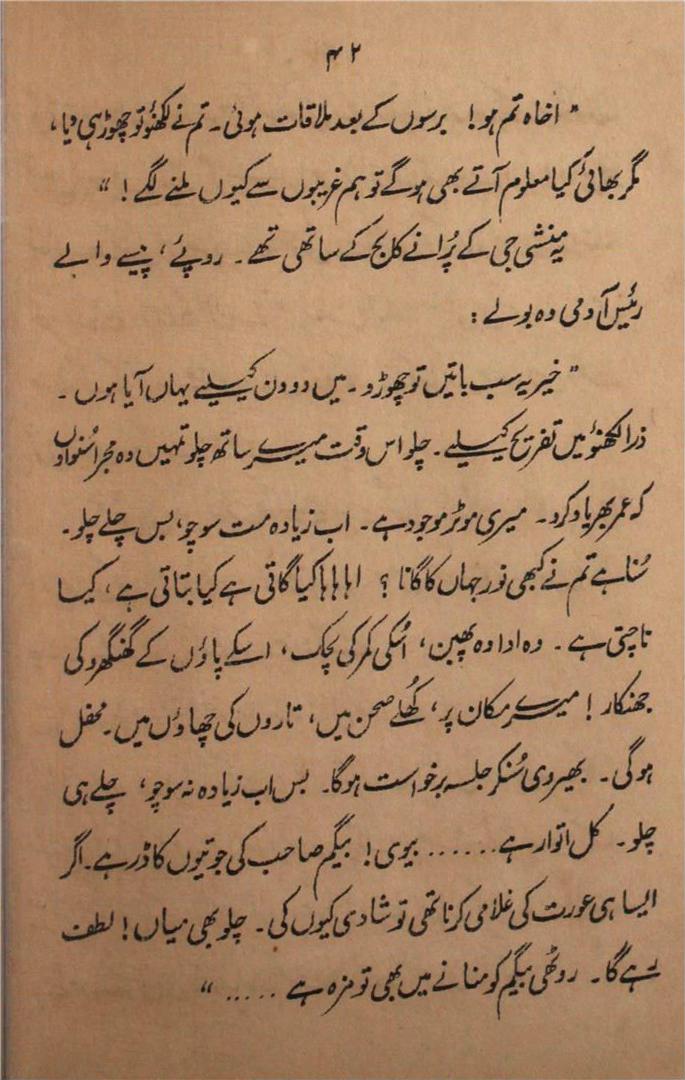 ۴۲
" اخاہ تم ہو! برسوں کے بعد ملاقات ہوئی۔ تم نے لکھنؤ تو چھوڑ ہی دیا،
مگر بھائی کیا معلوم آتے بھی ہوگے تو ہم غریبوں سے کیوں ملنے لگے! "
یہ منشی جی کے پُرانے کالج کے ساتھی تھے۔ روپئے، پیسے والے
رئیس آدمی وہ بولے:
" خیر یہ سب باتیں تو چھوڑو۔ میں دو دن کیلیے یہاں آیا ہوں۔
ذرا لکھنؤ میں تفریح کیلیے۔ چلو اس وقت میرے ساتھ چلو تمہیں وہ مجرا سُنواؤں
کہ عمر بھر یاد کرو۔ میری موٹر موجود ہے۔ اب زیادہ مت سوچو، بس چلے چلو۔
سُنا ہے تم نے کبھی نور جہاں کا گانا؟ اہاہاہا کیا گاتی ہے کیا بتاتی ہے، کیسا
ناچتی ہے۔ وہ ادا وہ پھبن، اُسکی کمر کی لچک، اسکے پاؤں کے گھنگھرو کی
جھنکار! میرے مکان پر، کھُلے صحن میں، تاروں کی چھاؤں میں۔ محفل
ہوگی۔ بھیروی سُنکر جلسہ برخواست ہوگا۔ بس اب زیادہ نہ سوچو، چلے ہی
چلو۔ کل اتوار ہے...... بیوی! بیگم صاحب کی جوتیوں کا ڈر ہے۔ اگر
ایسا ہی عورت کی غلامی کرنا تھی تو شادی کیوں کی۔ چلو بھی میاں! لطف
رہے گا۔ روٹھی بیگم کو منانے میں بھی تو مزہ ہے ..... "